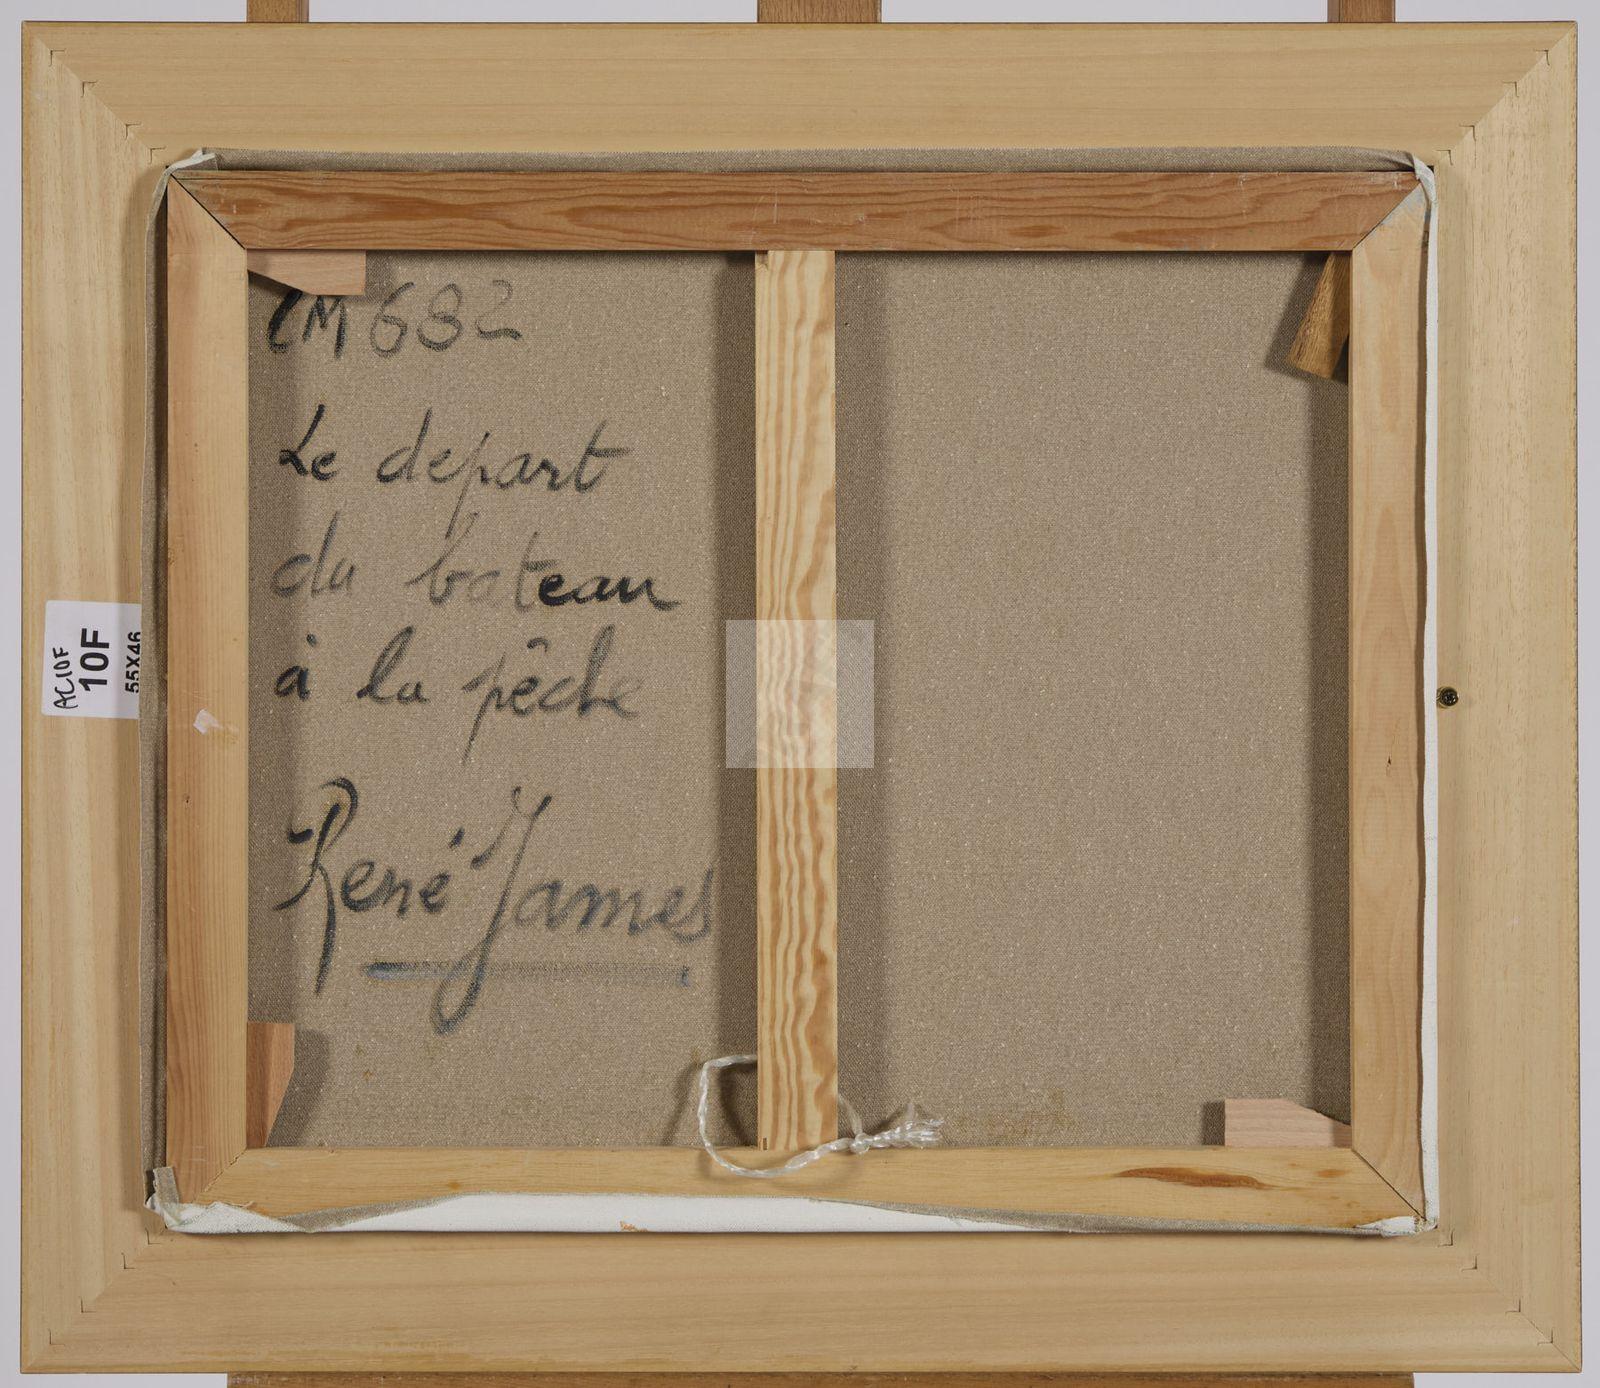 CM682
Le depart
du bateau
à la pêche
René James
AC10F
10F
55X46